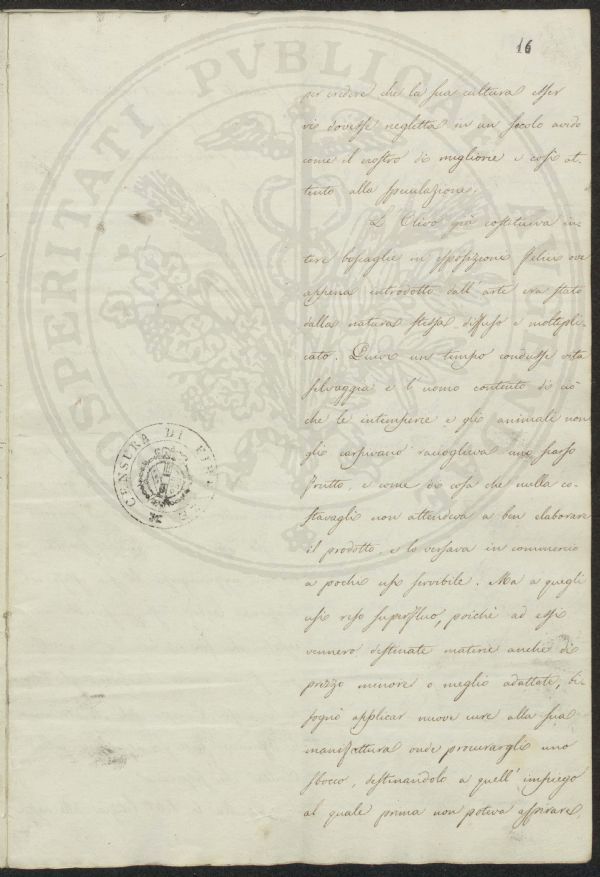 16
per credere che la sua cultura esser
vi dovesse negletta in un secolo avido
come il nostro di migliorie e così at-
tento alla speculazione.
L'Olivo già costituiva in-
tere boscaglie in esposizioni felici ove
appena introdotto dall'arte era stato
dalla natura stessa diffuso e moltipli-
cato. Quivi un tempo condusse vita
selvaggia e l'uomo contento di ciò
che le intemperie e gli animali non
gli carpivano raccoglieva uno scarso
frutto, e come di cosa che nulla co-
stavagli non attendeva a ben elaborare
il prodotto, e lo versava in commercio
a pochi usi servibile. Ma a quegli
usi reso superfluo, poichè ad essi
vennero destinate materie anche di
prezzo minore o meglio adattate, bi-
sognò applicar nuove cure alla sua
manifattura onde procurargli uno
sbocco, destinandolo a quell'impiego
al quale prima non poteva aspirare,
CENSURA DI
PROSPERITATI PVBLICAE